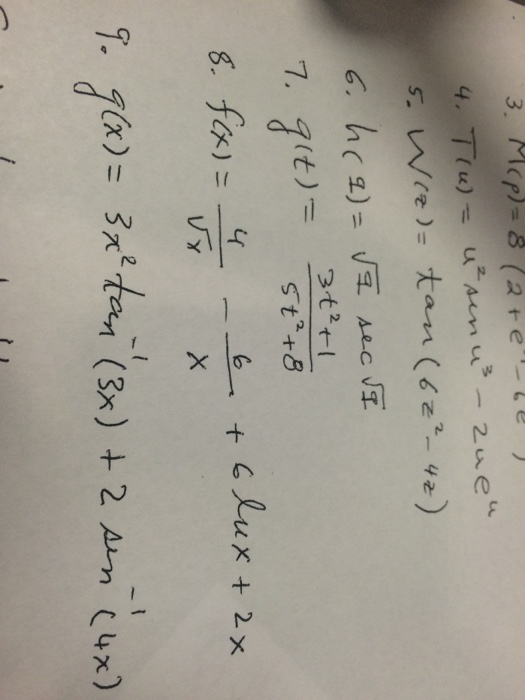 3. M(p) = 8(2+e
4. T(u) = u² sin u³ − 2ue^u
5. W(z) = tan(6z² − 4z)
6. h(q) = √q sec √q
7. g(t) = (3t²+1)/(5t²+8)
8. f(x) = 4/√x − 6/x + 6 ln x + 2x
9. g(x) = 3x² tan⁻¹(3x) + 2 sin⁻¹(4x)